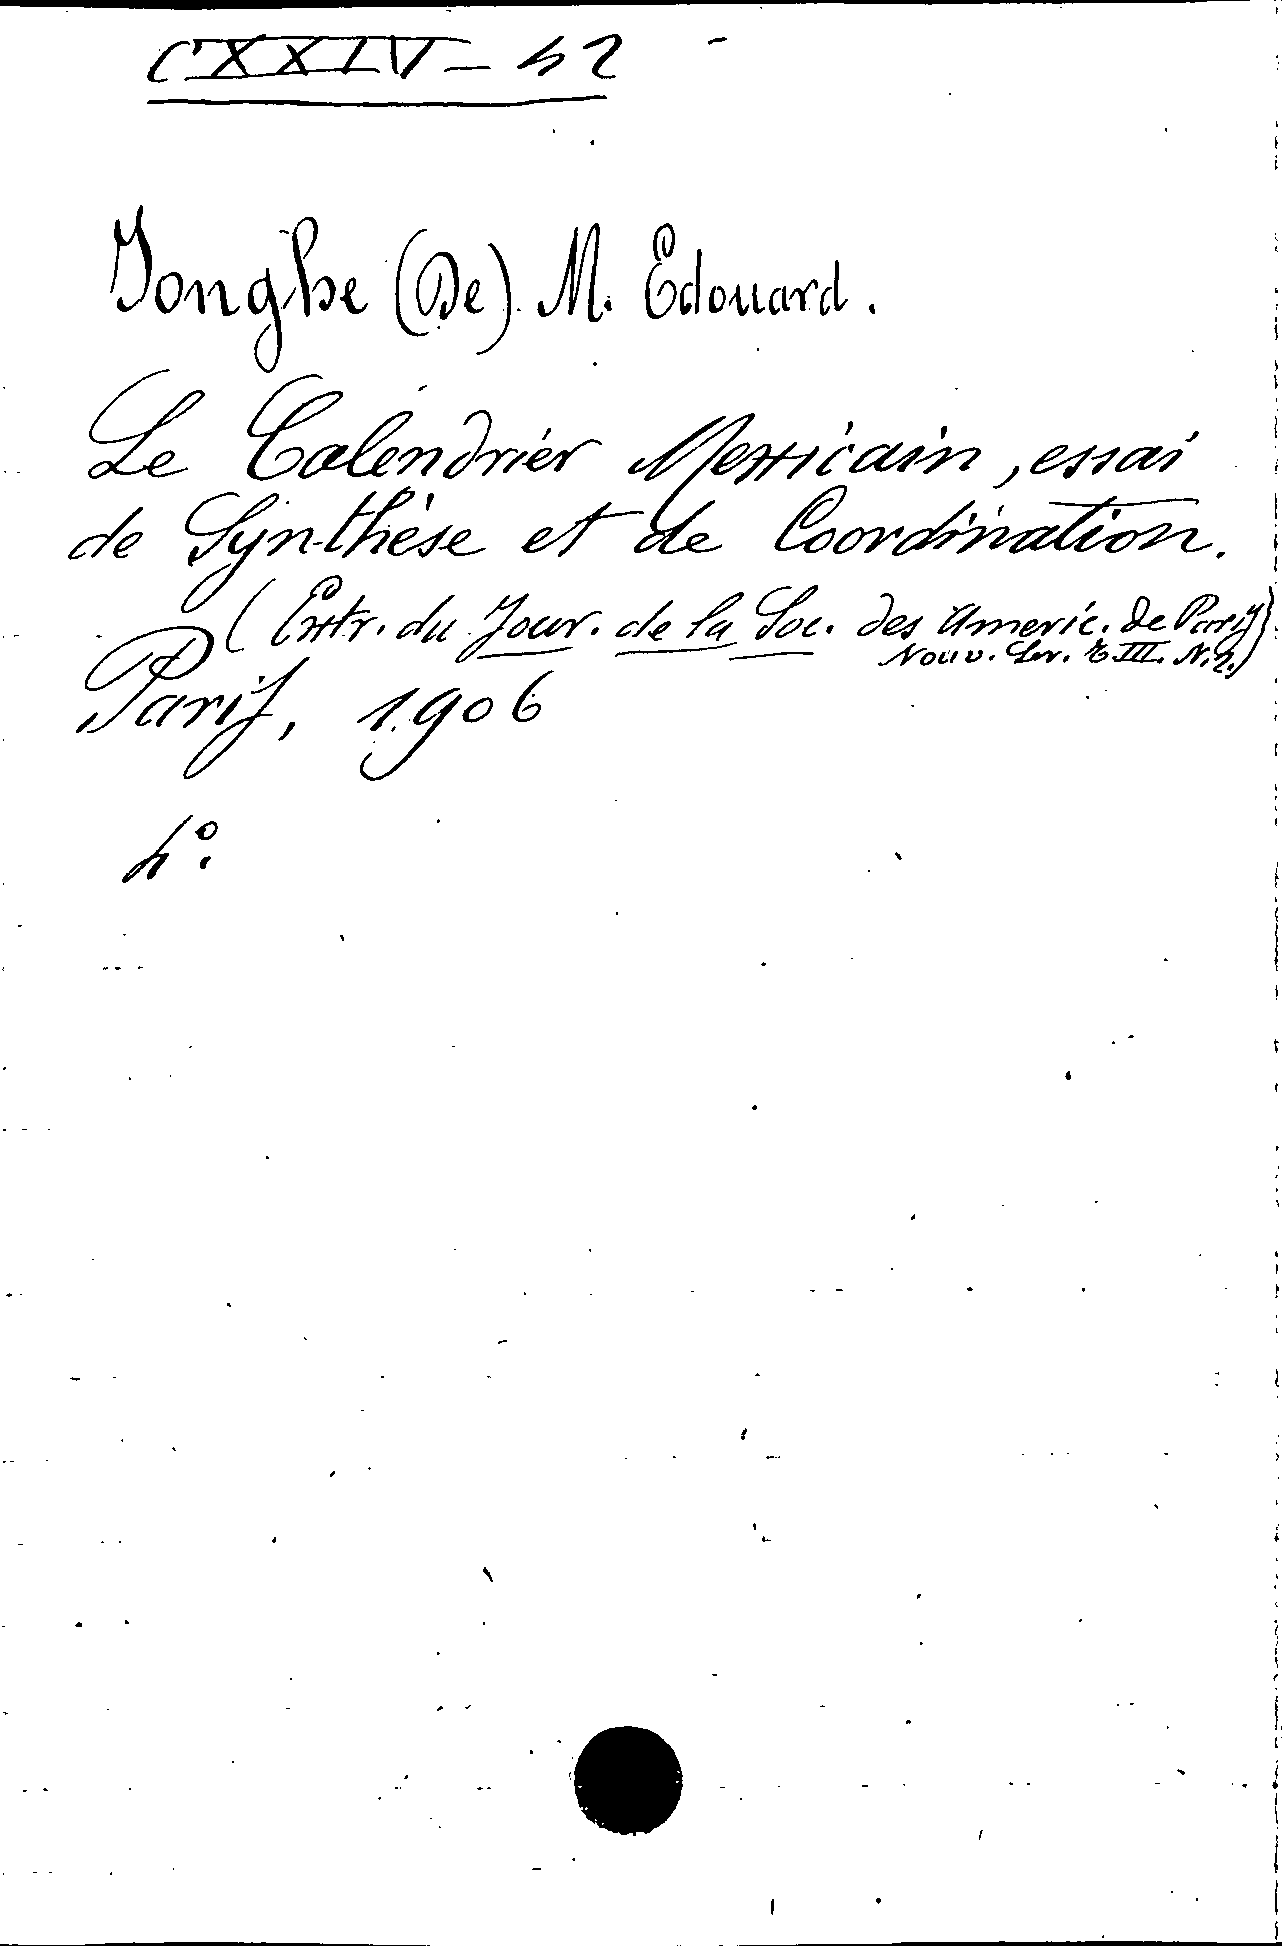 CXXIV - 42
Jonghe (De) M. Edouard.
Le Calendrier Mexicain, essai
de Synthèse et de Coordination.
(Extr. du Jour. de la Soc. des Americ. de Paris
Nouv. Ser. t. III. N. 2.)
Paris, 1906
4º.